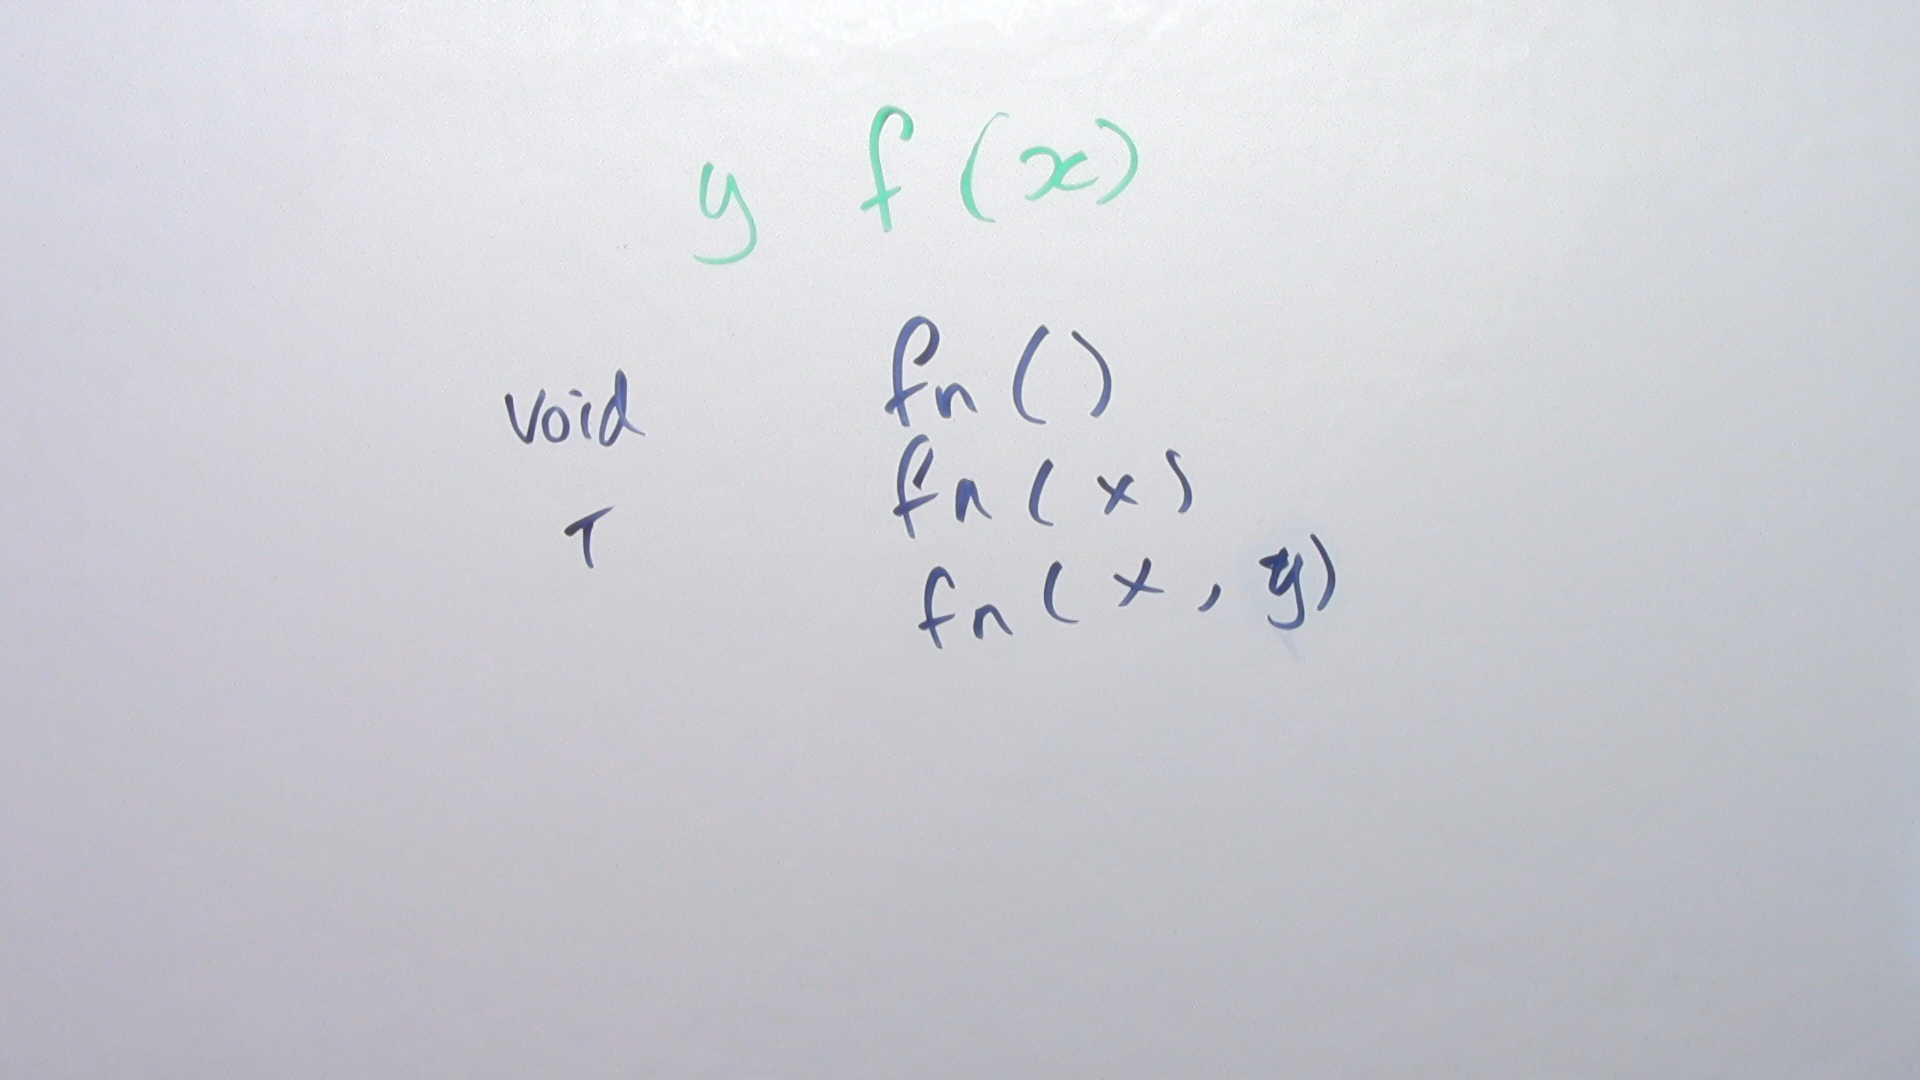 y f(x)
void fn()
T fn(x)
fn(x, y)